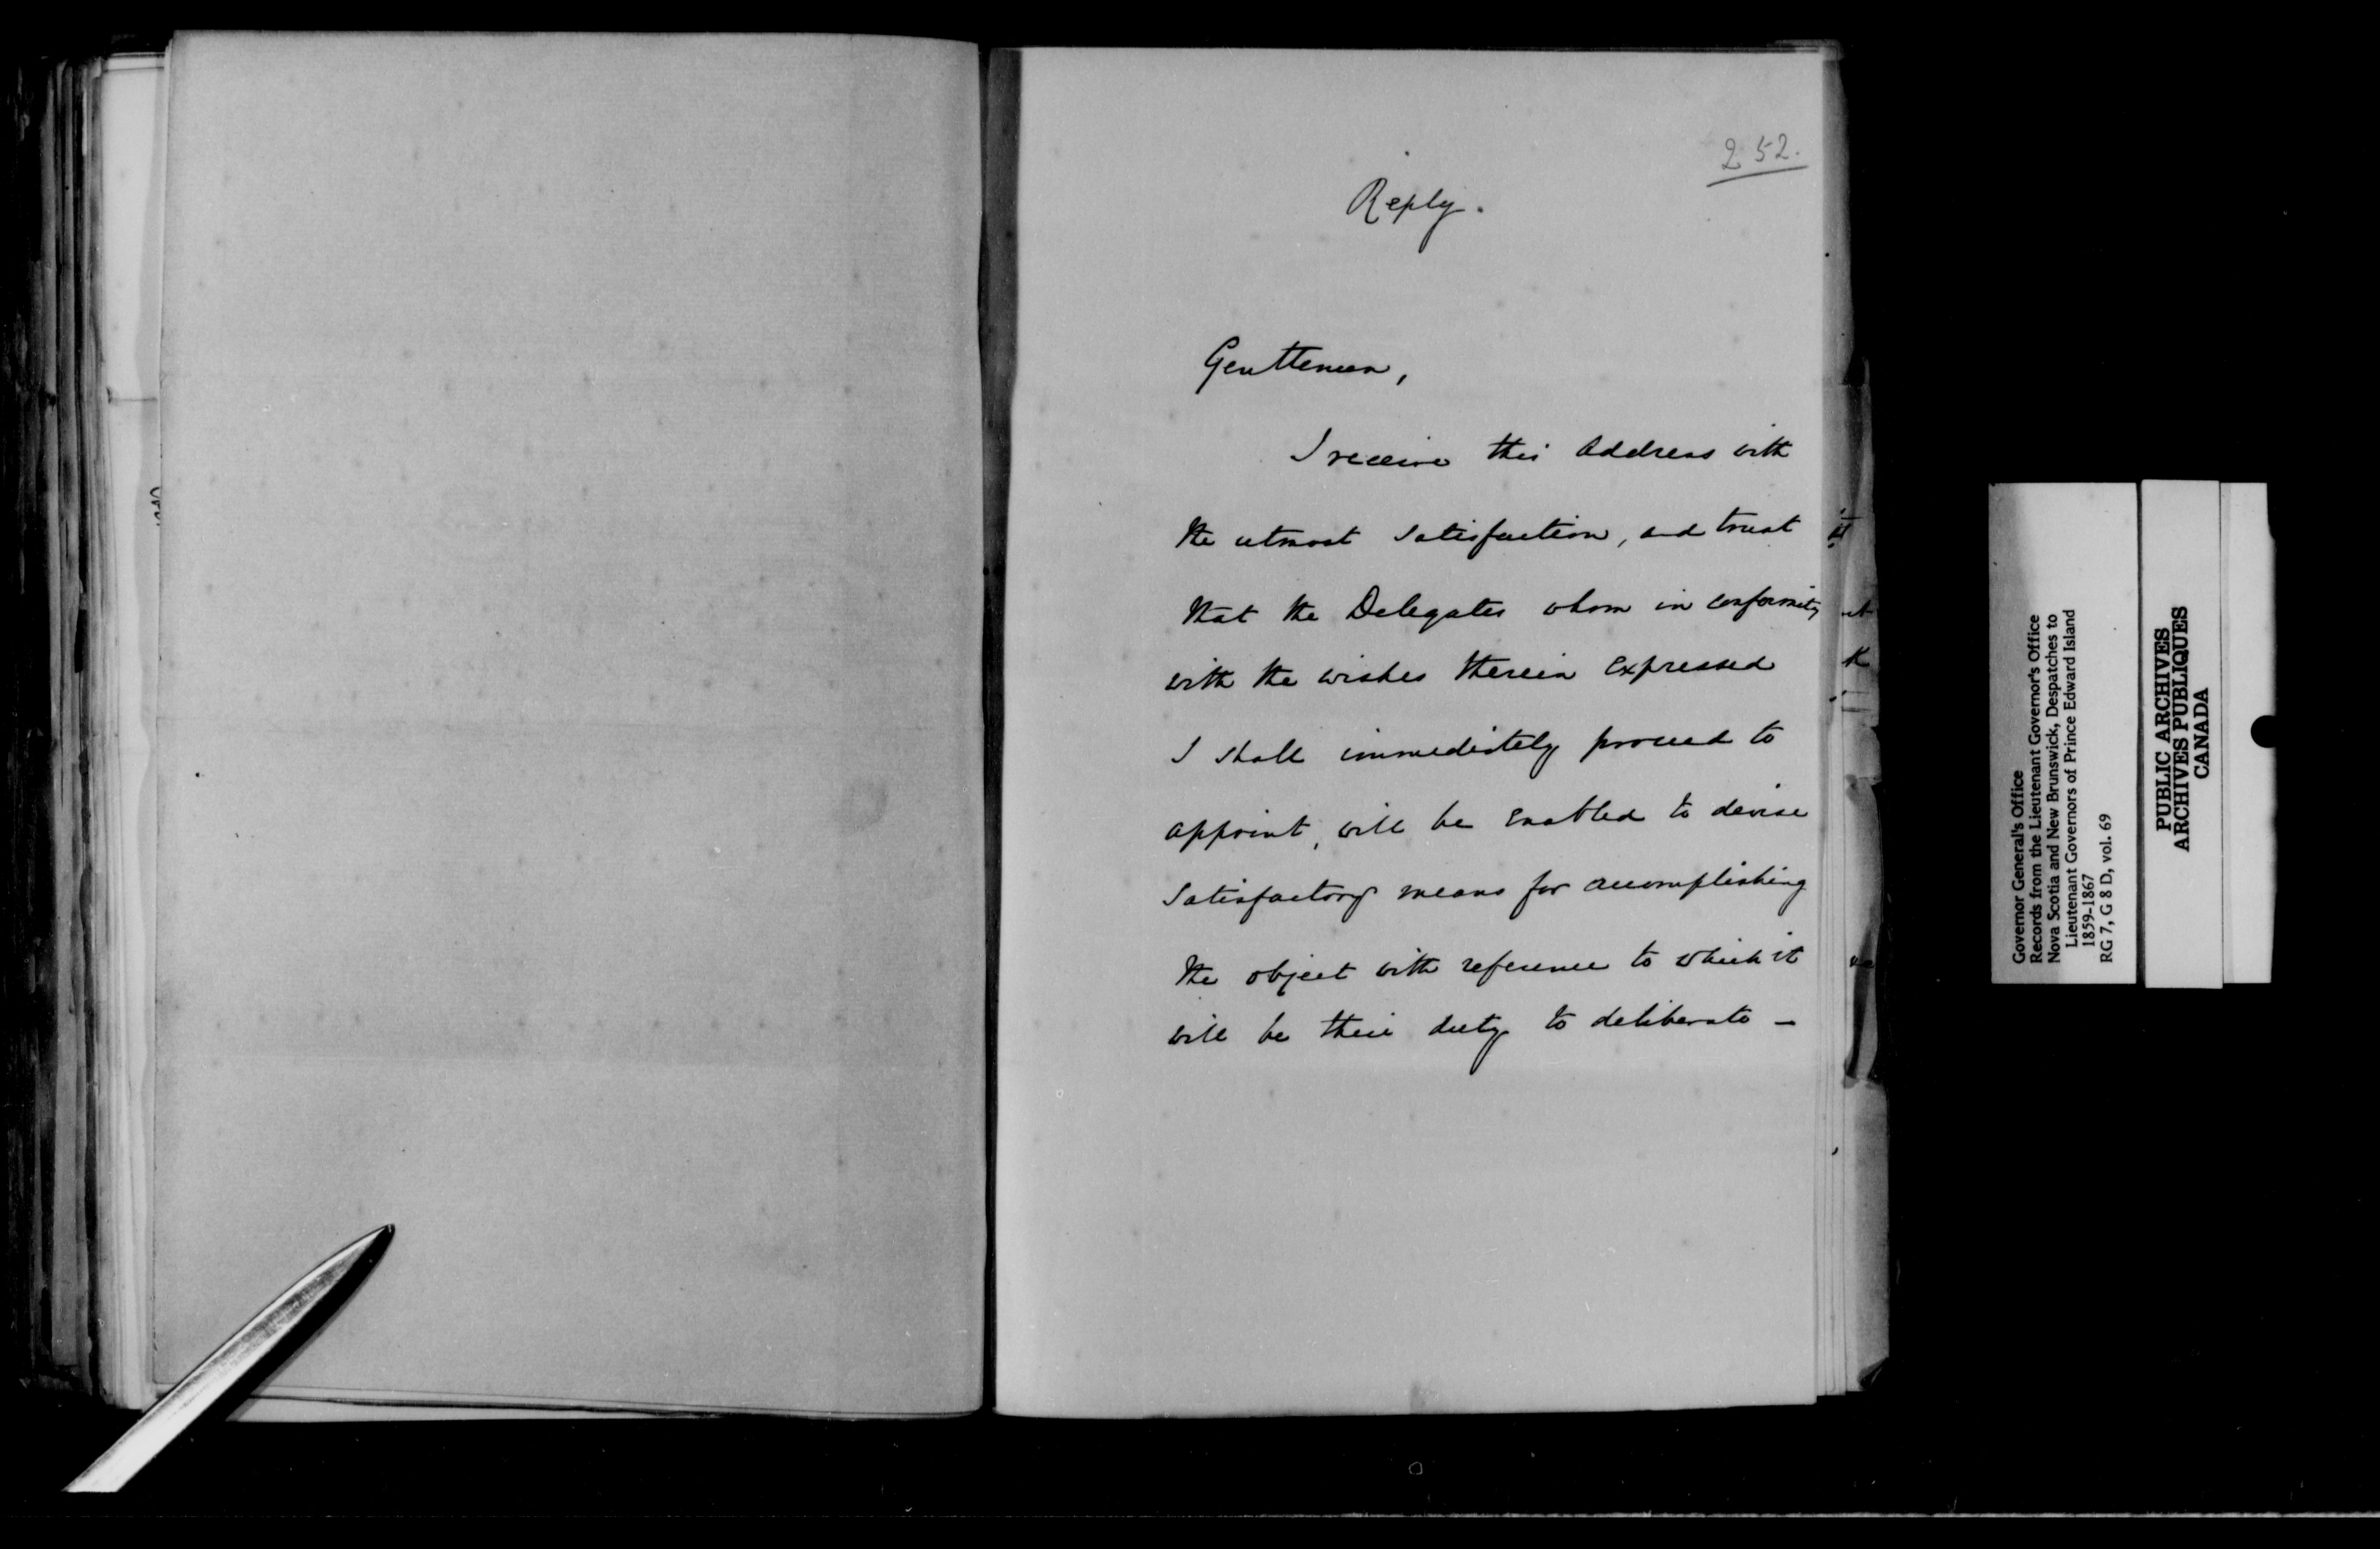 252.
Reply.
Gentlemen,
I receive this Address with
the utmost satisfaction, and trust
that the Delegates whom in conformity
with the wishes therein expressed
I shall immediately proceed to
appoint, will be enabled to devise
satisfactory means for accomplishing
the object with reference to which it
will be their duty to deliberate —
Governor General's Office
Records from the Lieutenant Governor's Office
Nova Scotia and New Brunswick, Despatches to
Lieutenant Governors of Prince Edward Island
1859-1867
RG 7, G 8 D, vol. 69
PUBLIC ARCHIVES
ARCHIVES PUBLIQUES
CANADA